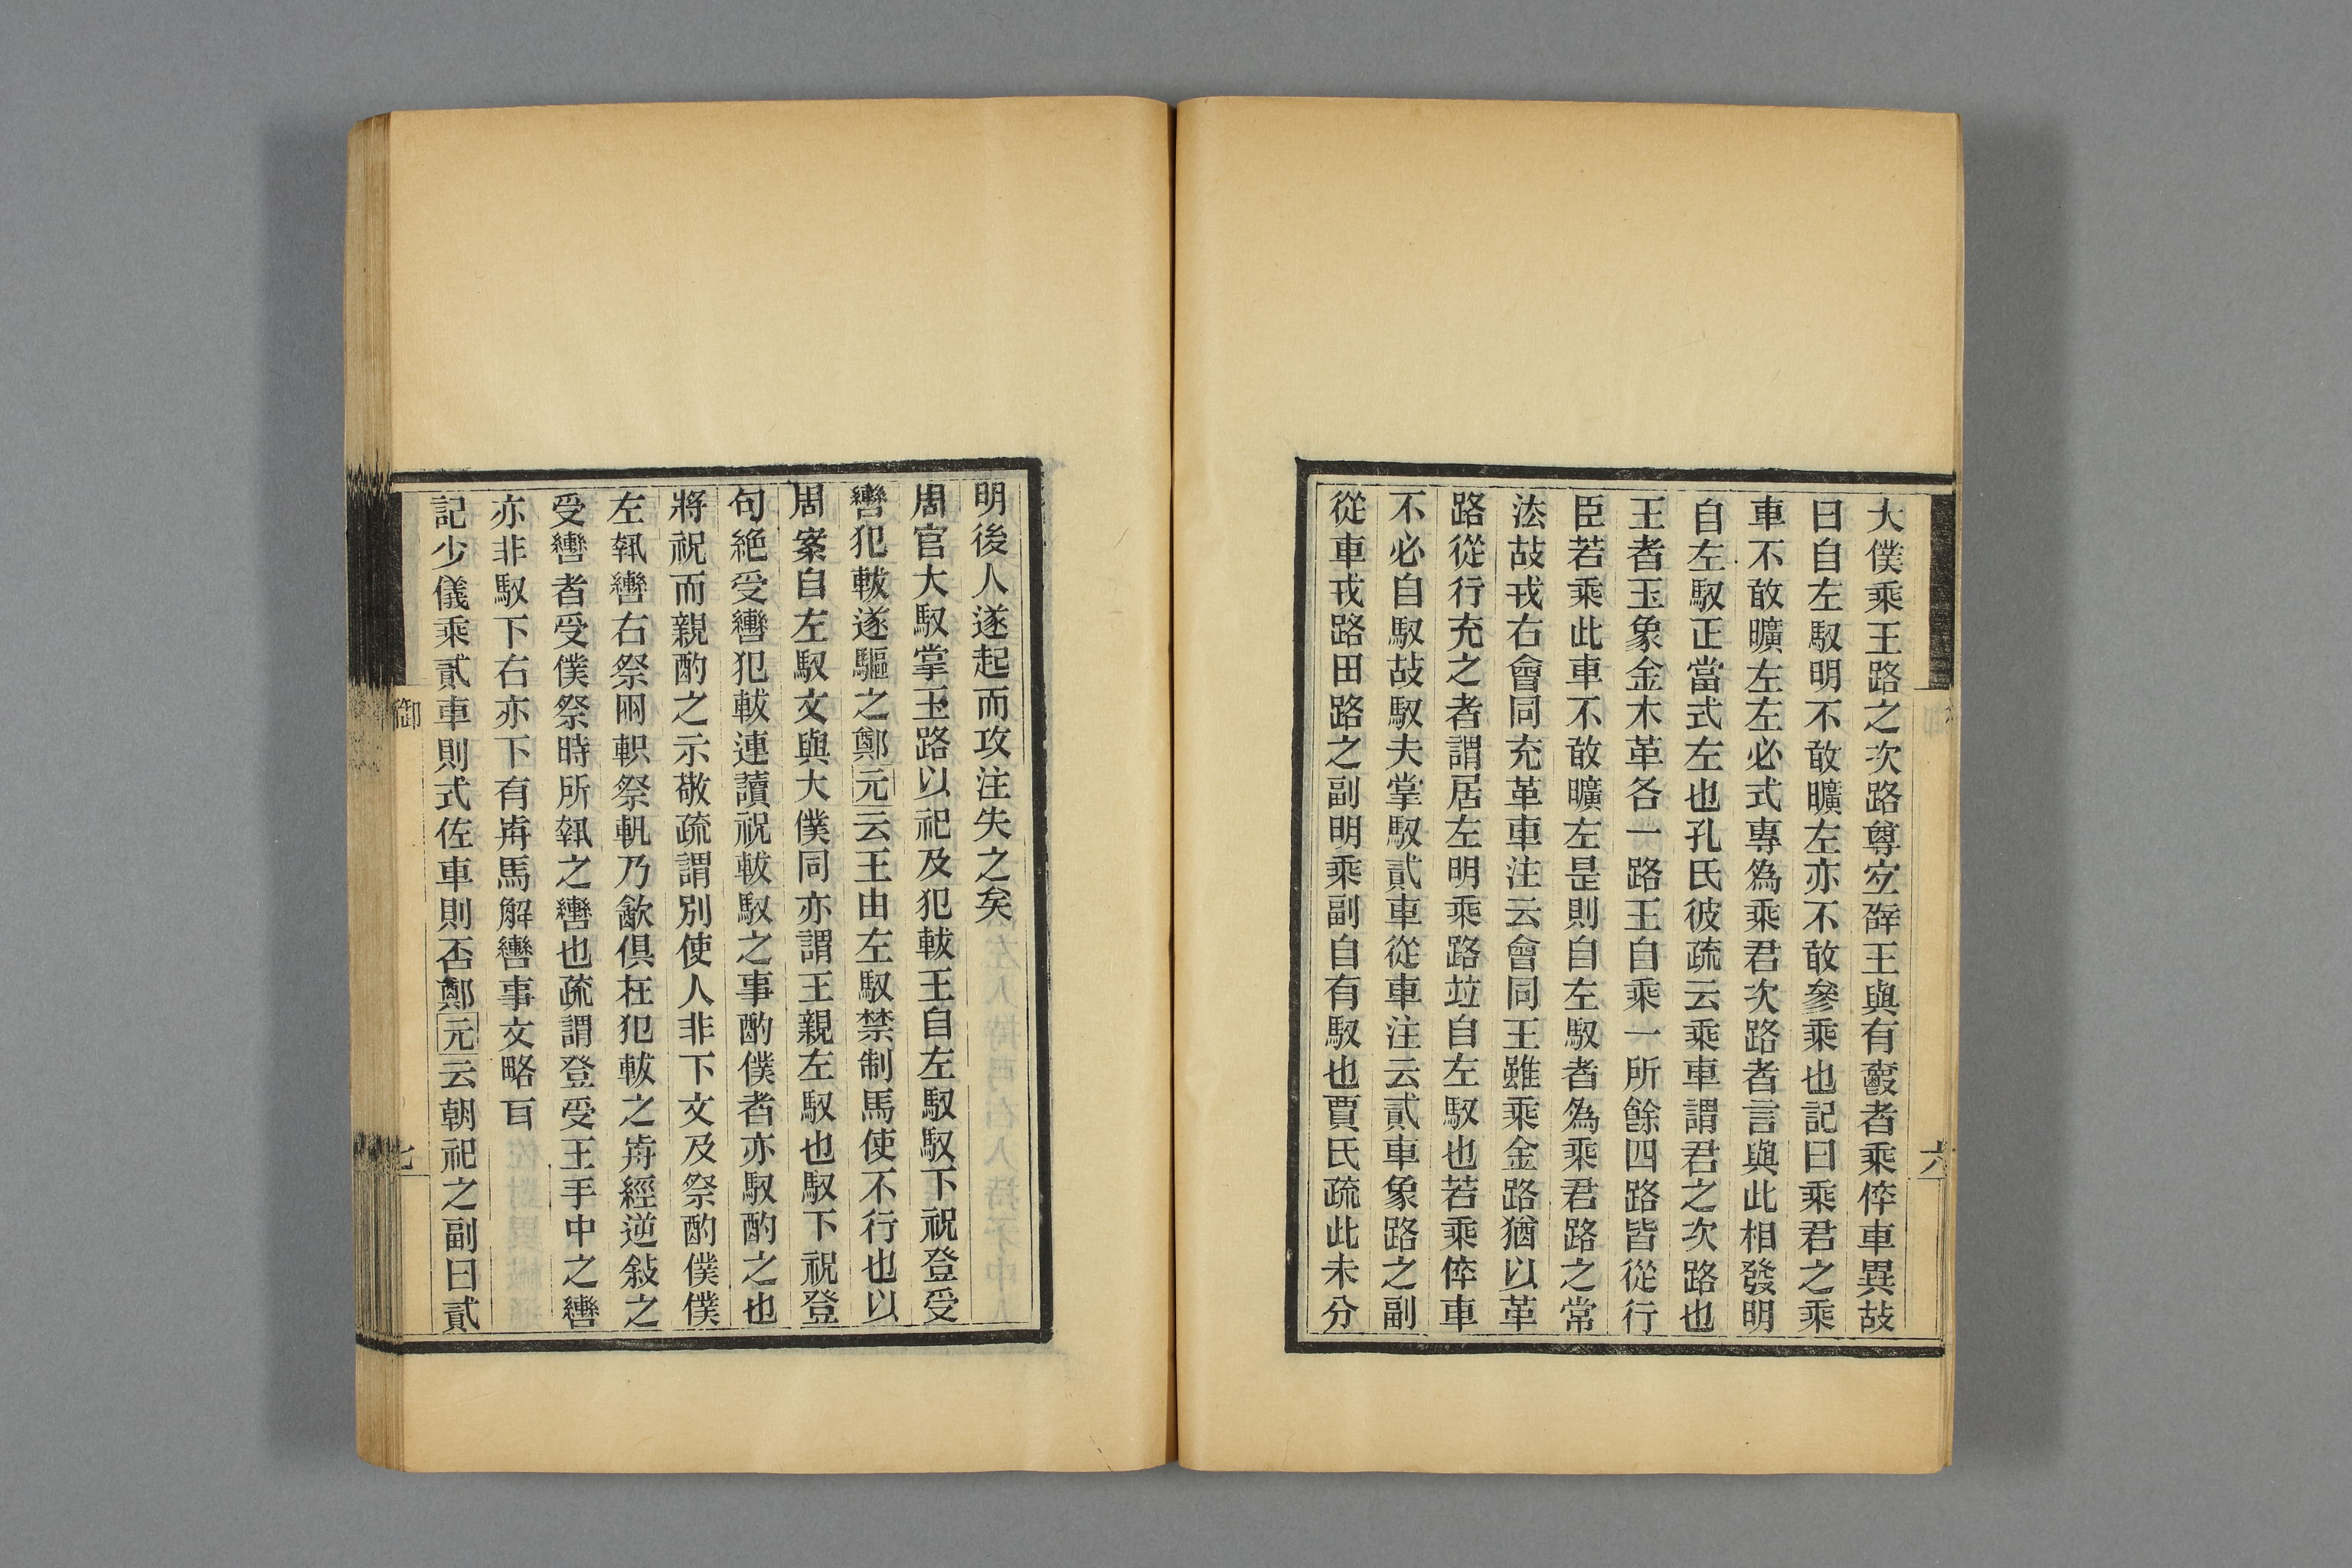 大僕乘王路之次路尊宜辟王與有爵者乘倅車異故
曰自左馭明不敢曠左亦不敢參乘也記曰乘君之乘
車不敢曠左左必式專為乘君次路者言與此相發明
自左馭正當式左也孔氏彼疏云乘車謂君之次路也
王者玉象金木革各一路王自乘一所餘四路皆從行
臣若乘此車不敢曠左是則自左馭者為乘君路之常
法故戎右會同充革車注云會同王雖乘金路猶以革
路從行充之者謂居左明乘路竝自左馭也若乘倅車
不必自馭故馭夫掌馭貳車從車注云貳車象路之副
從車戎路田路之副明乘副自有馭也賈氏疏此未分
六
明後人遂起而攻注失之矣
周官大馭掌玉路以祀及犯軷王自左馭馭下祝登受
轡犯軷遂驅之鄭元云王由左馭禁制馬使不行也以
周案自左馭文與大僕同亦謂王親左馭也馭下祝登
句絶受轡犯軷連讀祝軷馭之事酌僕者亦馭酌之也
將祝而親酌之示敬疏謂別使人非下文及祭酌僕僕
左執轡右祭兩軹祭軓乃飮俱在犯軷之歬經逆敍之
受轡者受僕祭時所執之轡也疏謂登受王手中之轡
亦非馭下右亦下有歬馬解轡事文略耳
記少儀乘貳車則式佐車則否鄭元云朝祀之副曰貳
御
七